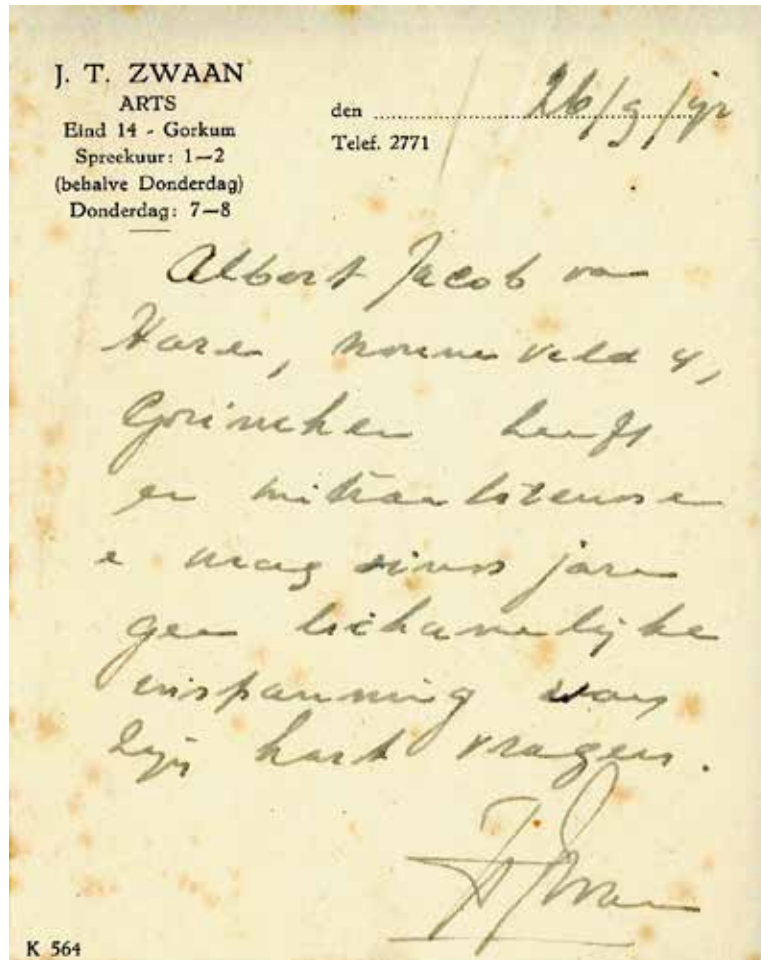 J. T. ZWAAN
ARTS
Eind 14 - Gorkum
Spreekuur: 1—2
(behalve Donderdag)
Donderdag: 7—8
den 26/9/
Telef. 2771
Albert Jacob van
Haren, Nonnenveld 4,
Gorinchem heeft
een mitraalstenose
en mag sinds jaren
geen lichamelijke
inspanning van
zijn hart vragen.
K 564